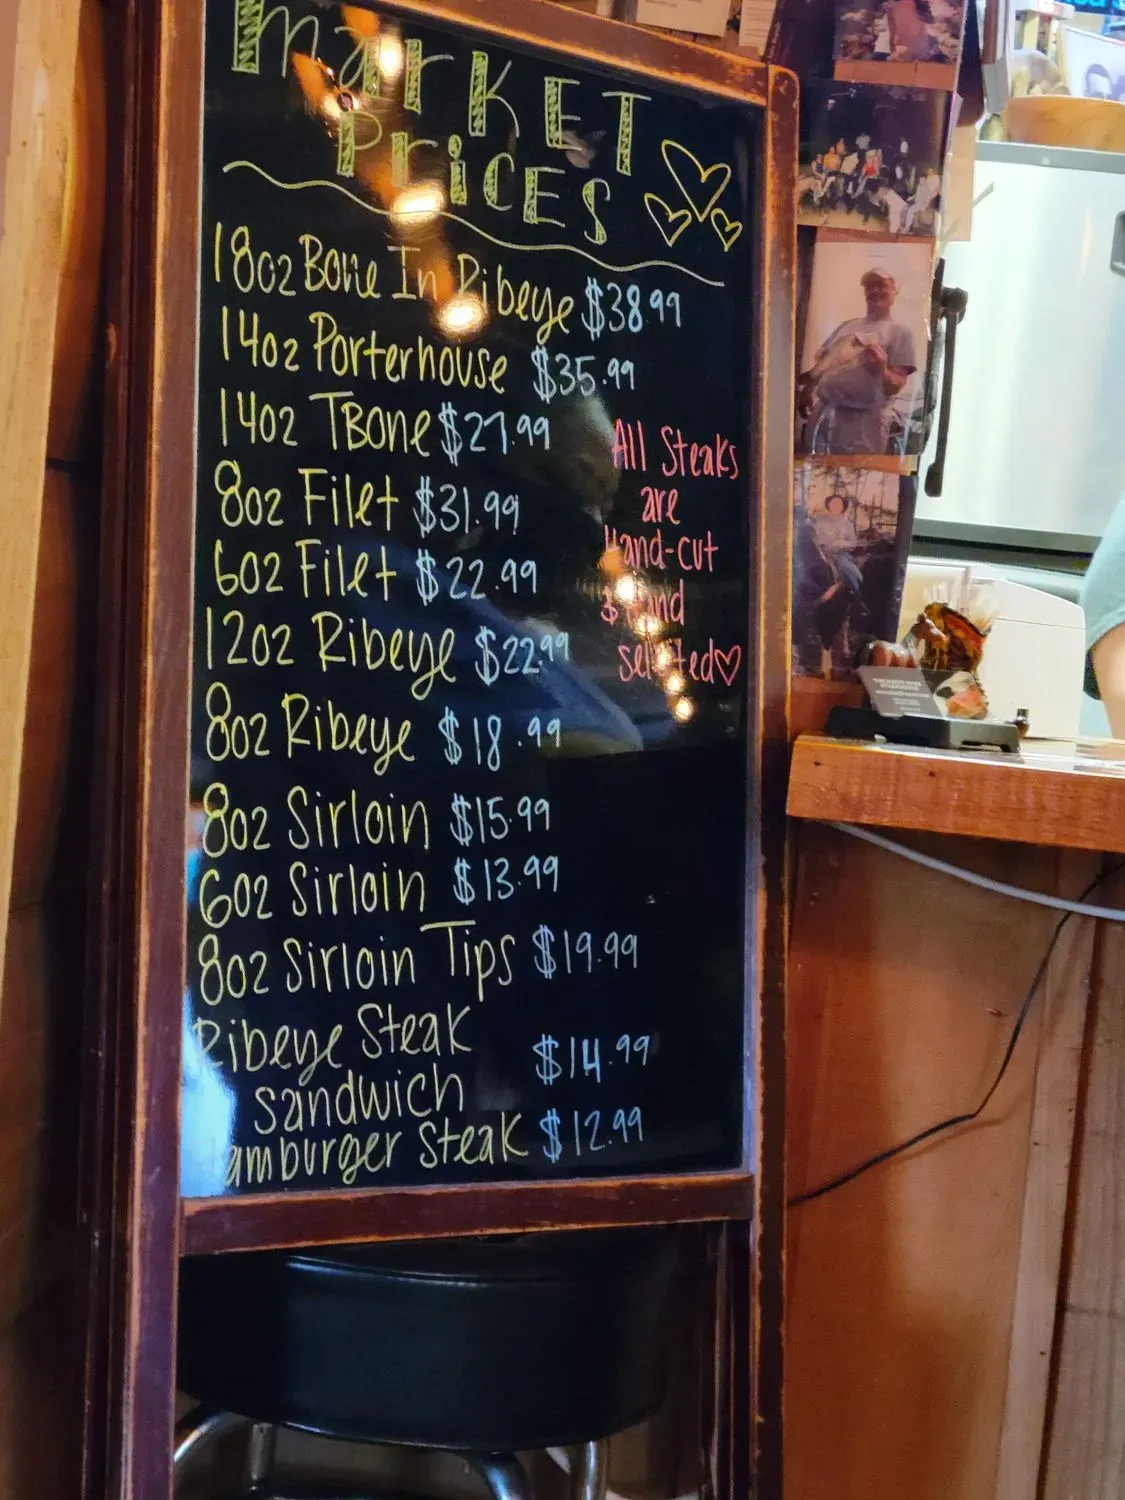 Market
Prices
18oz Bone In Ribeye $38.99
14oz Porterhouse $35.99
14oz TBone $27.99
8oz Filet $31.99
6oz Filet $22.99
12oz Ribeye $22.99
8oz Ribeye $18.99
8oz Sirloin $15.99
6oz Sirloin $13.99
8oz Sirloin Tips $19.99
Ribeye Steak
sandwich $14.99
Hamburger Steak $12.99
All Steaks
are
Hand-cut
$ Hand
selected